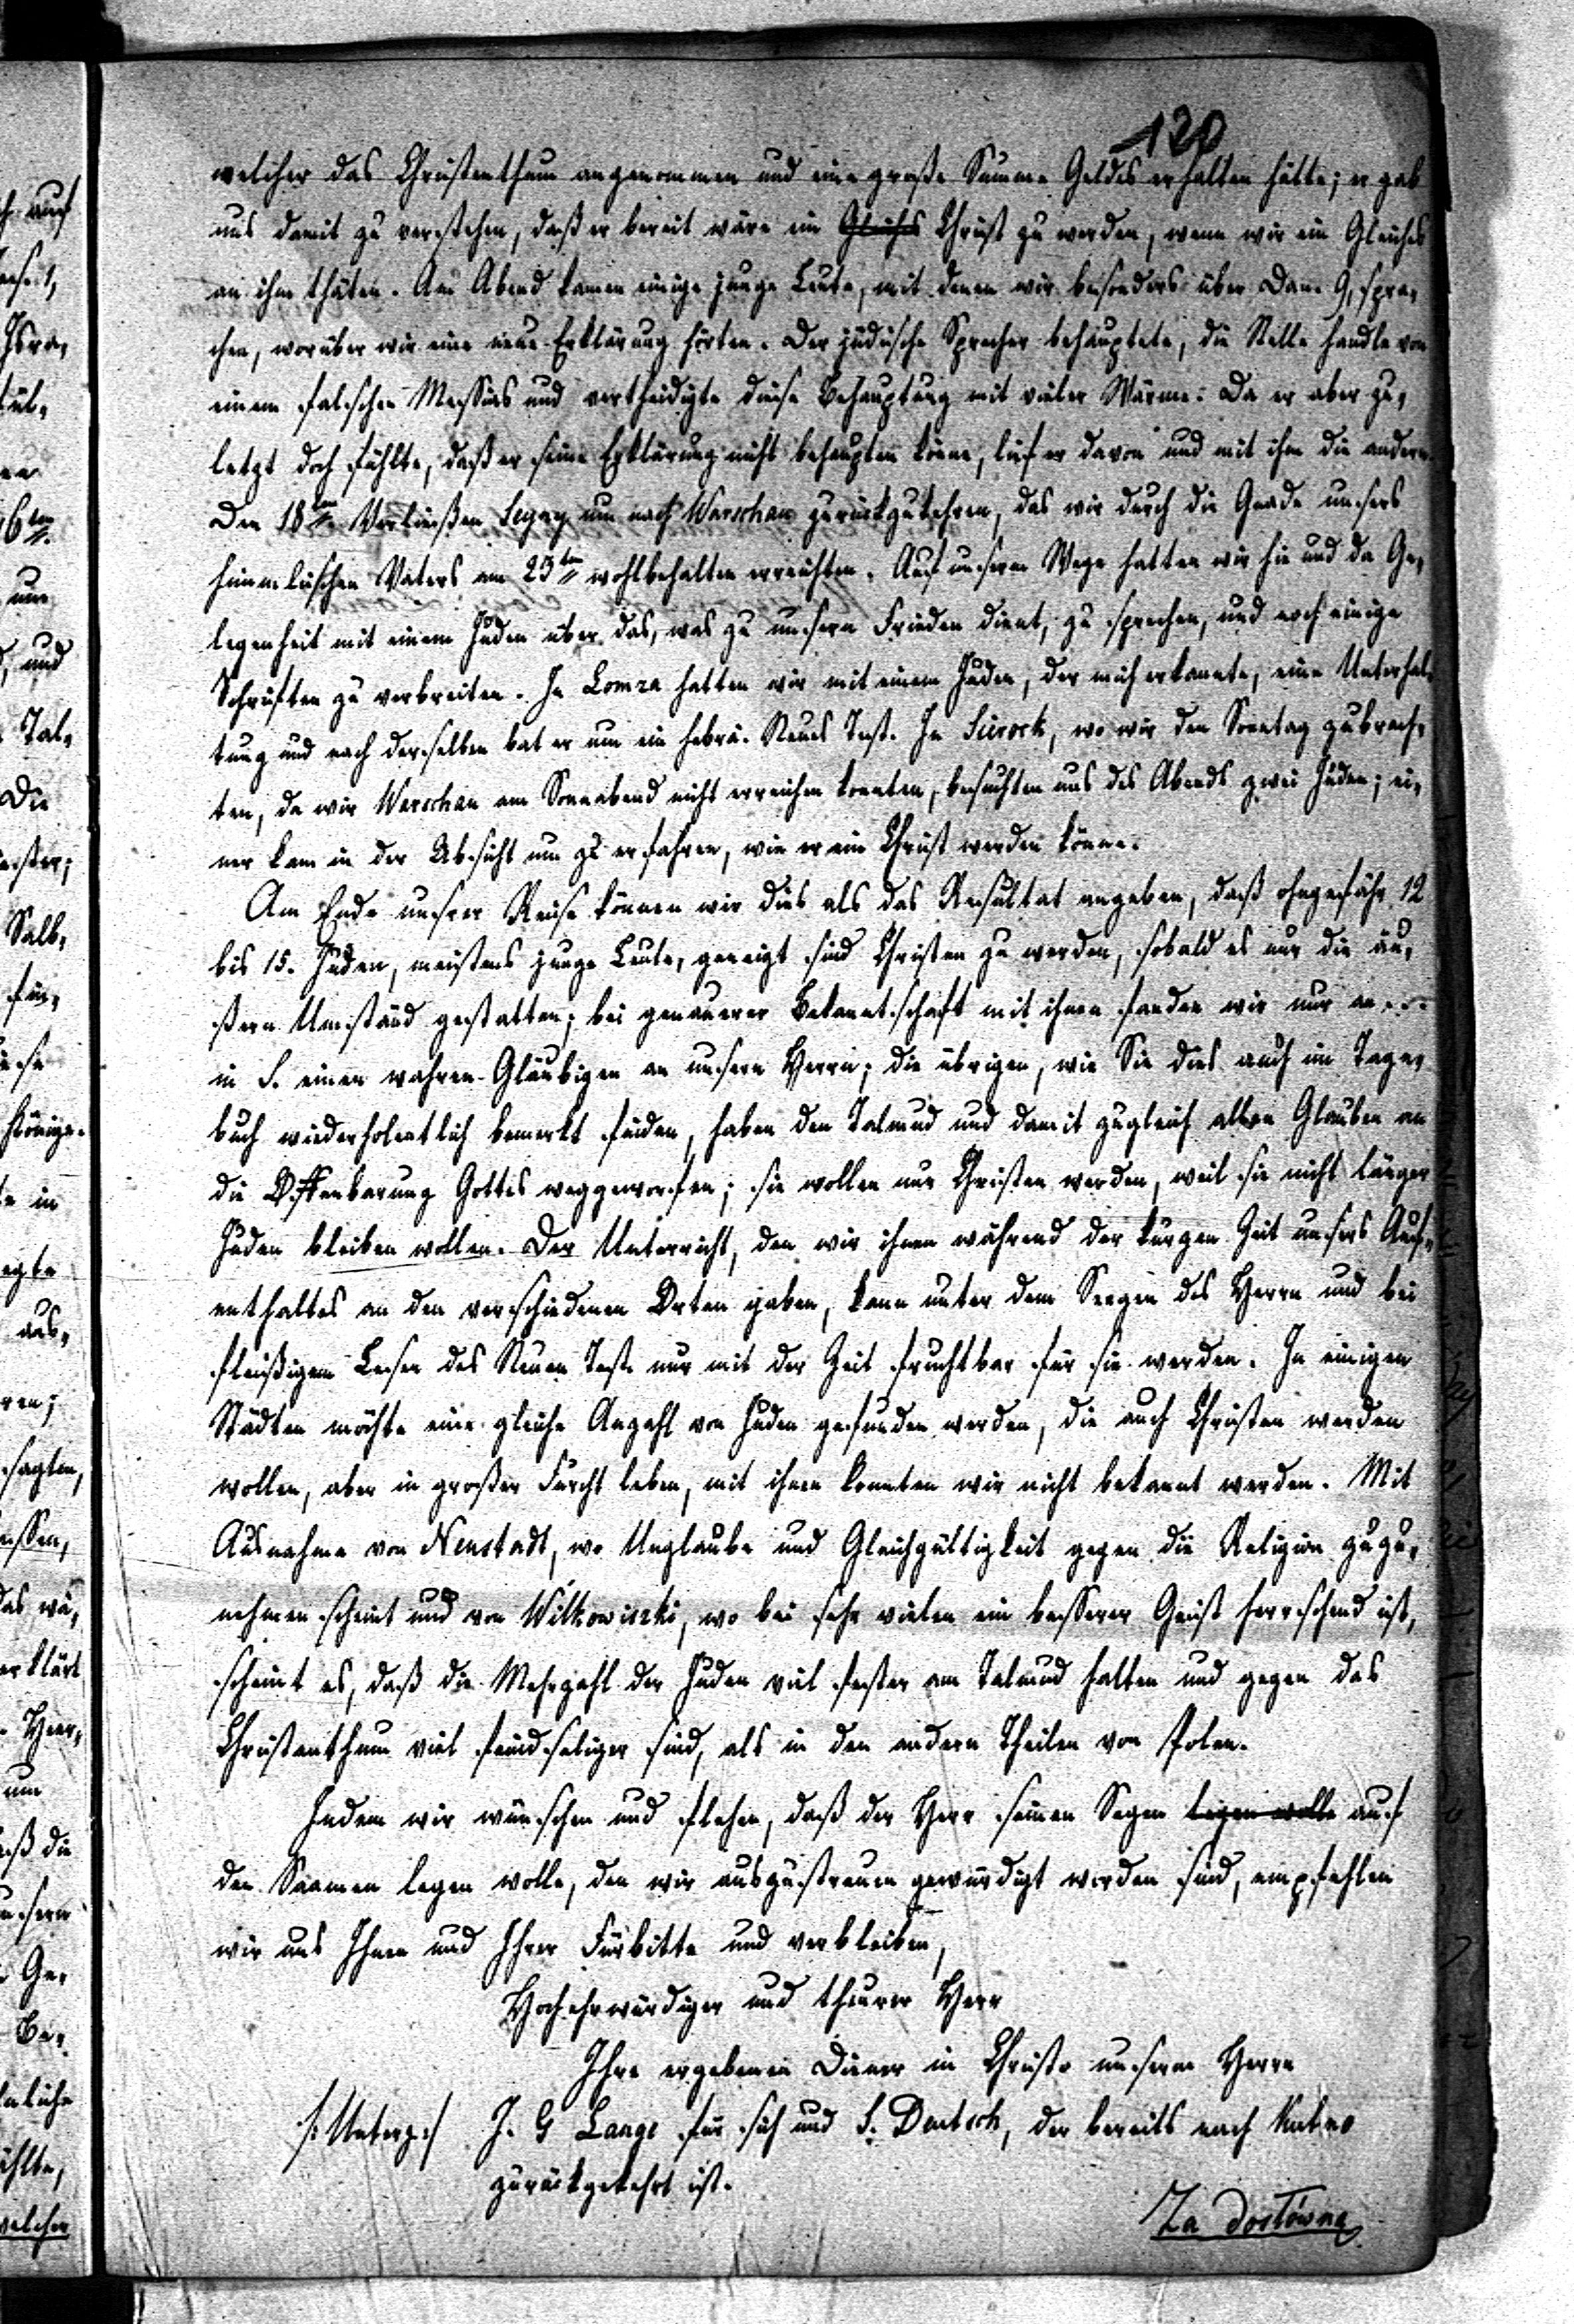 120
welcher das Christenthum angenommen und eine große Summe Geldes erhalten hätte; er gab
uns damit zu verstehen, daß er bereit wäre ein Gleiches Christ zu werden, wenn wir ein Gleiches
an ihm thäten. Am Abend kamen einige junge Leute, mit denen wir besonders über Dan. 9, spra-
chen, worüber wir eine neue Erklärung hörten. Der jüdische Sprecher behauptete, die Stelle handle von
einem falschen Messias und vertheidigte diese Behauptung mit vieler Wärme. Da er aber zu-
letzt doch fühlte, daß er seine Erklärung nicht behaupten könne, lief er davon und mit ihm die andern.
Den 18ten Verließen um nach Warschau zurückzukehren, das wir durch die Gnade unsers
himmlischen Vaters am 23ten wohlbehalten erreichten. Auf unserm Wege hatten wir hie und da Ge-
legenheit mit einem Juden über das, was zu unserm Frieden dient, zu sprechen, und noch einige
Schriften zu verbreiten. In Lomza hatten wir mit einem Juden, der mich erkannte, eine Unterhal-
tung und nach derselben bat er um ein hebrä. Neues Test. In Sierock, wo wir den Sonntag zubrach-
ten, da wir Warschau am Sonnabend nicht erreichen konnten, besuchten uns des Abends zwei Juden; ei-
ner kam in der Absicht um zu erfahren, wie er ein Christ werden könne.
Am Ende unsrer Reise können wir dies als das Resultat angeben, daß ohngefähr 12
bis 15. Juden, meistens junge Leute, geneigt sind Christen zu werden, sobald es nur die äu-
ßern Umständ gestatten; bei genauerer Bekanntschaft mit ihnen fanden wir nur an
in S. einen wahren Gläubigen an unsern Herrn; die übrigen, wie Sie dies auch im Tage-
buch wiederholentlich bemerkt finden, haben den Talmud und damit zugleich allen Glauben an
die Offenbarung Gottes weggeworfen; sie wollen nur Christen werden, weil sie nicht länger
Juden bleiben wollen. Der Unterricht, den wir ihnen während der kurzen Zeit unsers Auf-
enthaltes an den verschiedenen Orten gaben, kann unter dem Seegen des Herrn und bei
fleißigem Lesen des Neuen Test. nur mit der Zeit fruchtbar für sie werden. In einigen
Städten möchte eine gleiche Anzahl von Juden gefunden werden, die auch Christen werden
wollen, aber in großer Furcht leben, mit ihnen konnten wir nicht bekannt werden. Mit
Ausnahme von Neustadt, wo Unglaube und Gleichgültigkeit gegen die Religion zuzu-
nehmen scheint und von Wilkowiszki, wo bei sehr vielen ein besserer Geist herrschend ist,
scheint es, daß die Mehrzahl der Juden viel fester am Talmud halten und gegen das
Christenthum viel feindseliger sind, als in den andern Theilen von Polen.
Indem wir wünschen und flehen, daß der Herr seinen Segen legen wolle auf
den Saamen legen wolle, den wir auszustreuen gewürdigt worden sind, empfehlen
wir uns Ihnen und Ihrer Fürbitte und verbleiben,
Hochehrwürdiger und theurer Herr
Ihre ergebenen Diener in Christo unserm Herrn
/:Unterz:/ J. G Lange für sich und S. Deutsch, der bereits nach Kutno
zurückgekehrt ist.
Za dosłowne